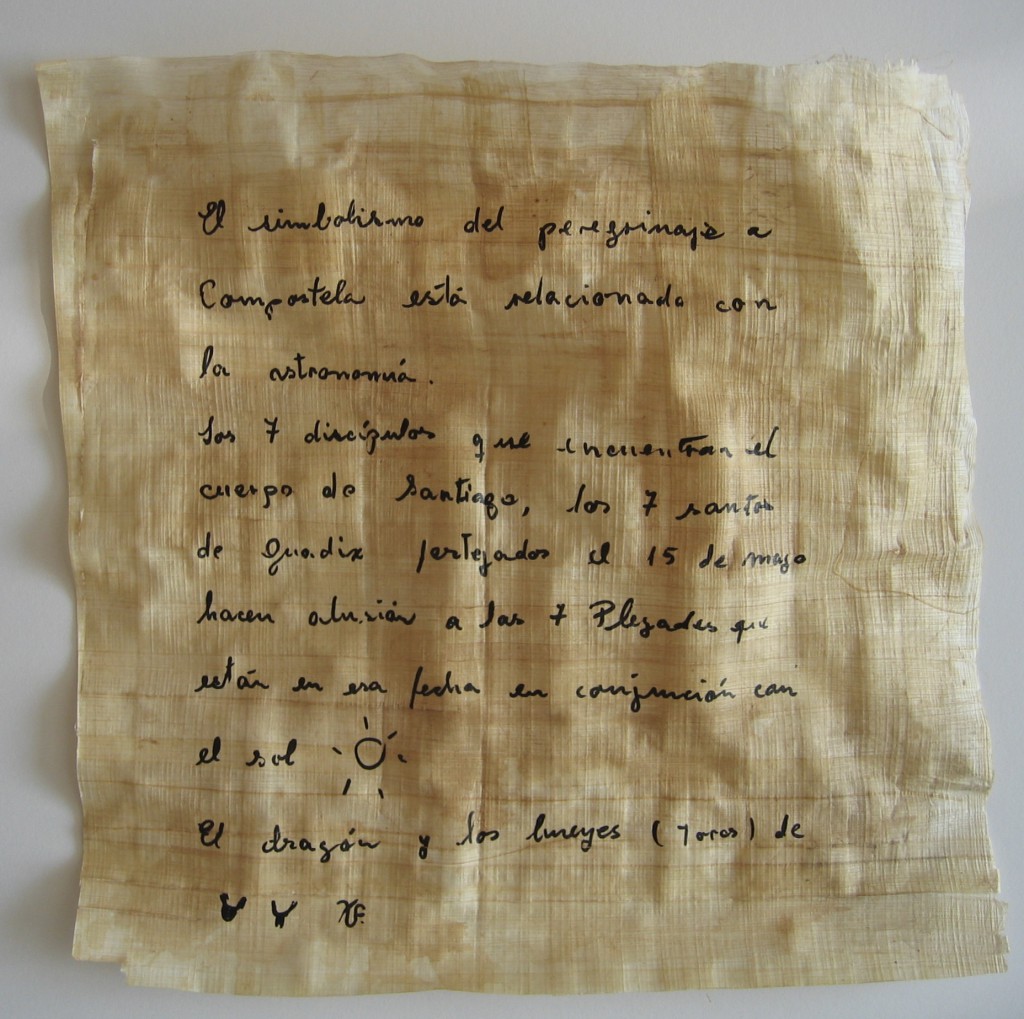 El simbolismo del peregrinaje a
Compostela está relacionado con
la astronomía.
Los 7 discípulos que encuentran el
cuerpo de Santiago, los 7 santos
de Guadix festejados el 15 de mayo
hacen alusión a las 7 Pleyades que
están en esa fecha en conjunción con
el sol
El dragón y los bueyes (Toros) de